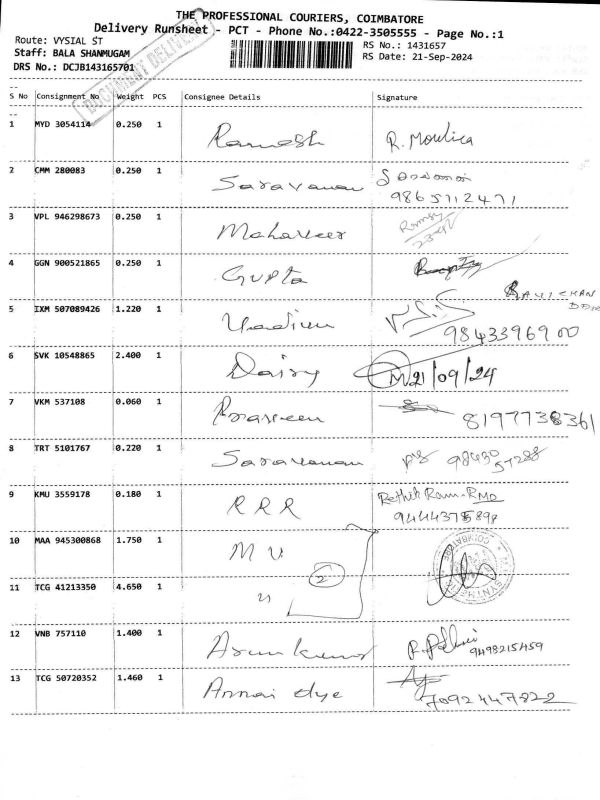 THE PROFESSIONAL COURIERS, COIMBATORE
Delivery Runsheet - PCT - Phone No.:0422-3505555 - Page No.:1
Route: VYSIAL ST
RS No.: 1431657
Staff: BALA SHANMUGAM
RS Date: 21-Sep-2024
DRS No.: DCJB143165701
DOCUMENT DELIVERY
S No Consignment No Weight PCS Consignee Details Signature
1 MYD 3054114 0.250 1 Ramesh R. Moulica
2 CMM 280083 0.250 1 Saravanan
9865712471
3 VPL 946298673 0.250 1 Mahaveer
4 GGN 900521865 0.250 1 Gupta
5 IXM 507089426 1.220 1
9843396900
6 SVK 10548865 2.400 1 Dairy 21/09/24
7 VKM 537108 0.060 1 Praveen
8197738361
8 TRT 5101767 0.220 1 Saravanan 98430
57288
9 KMU 3559178 0.180 1 RRR Rethik Ram-RMO
9444375898
10 MAA 945300868 1.750 1 M U
2
11 TCG 41213350 4.650 1 "
12 VNB 757110 1.400 1 Arun kumar
9498215459
13 TCG 50720352 1.460 1 Annai dye
7092447822